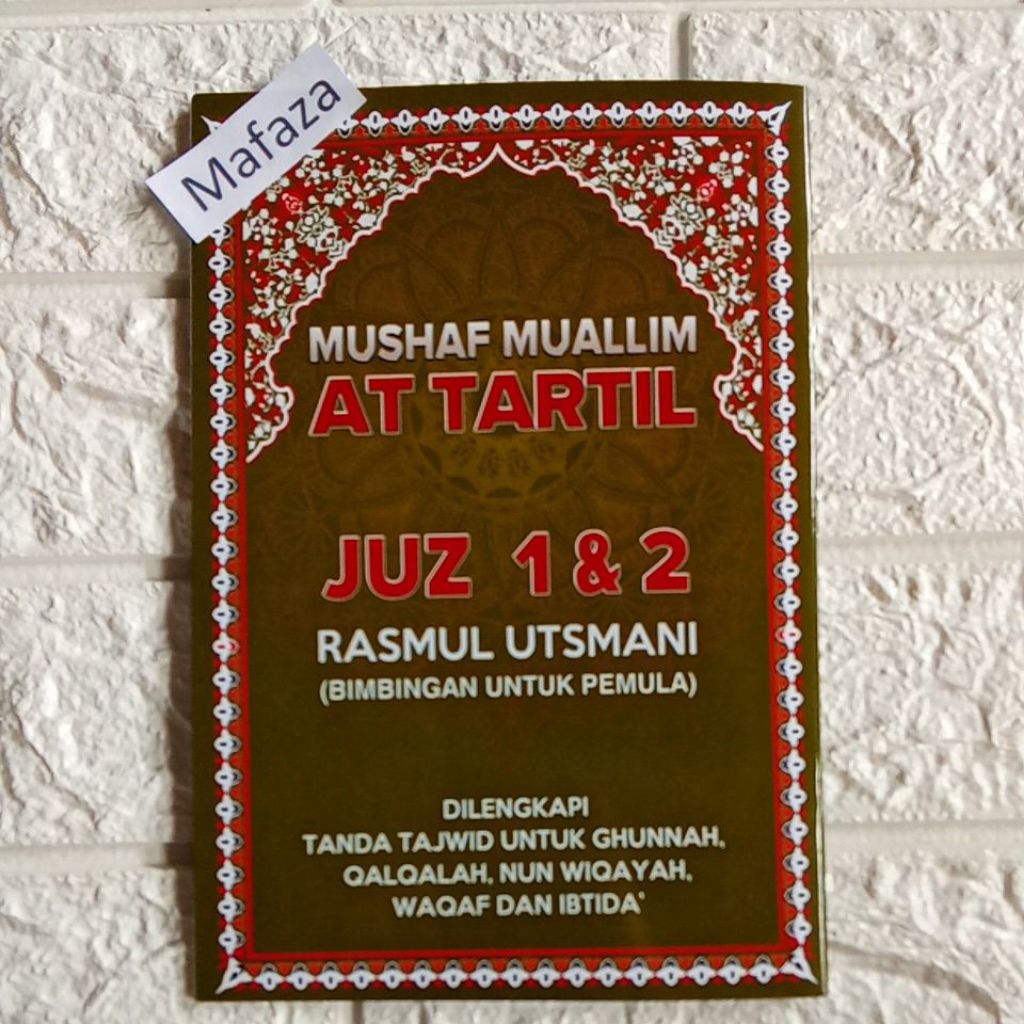 Mafaza
MUSHAF MUALLIM
AT TARTIL
JUZ 1 & 2
RASMUL UTSMANI
(BIMBINGAN UNTUK PEMULA)
DILENGKAPI
TANDA TAJWID UNTUK GHUNNAH,
QALQALAH, NUN WIQAYAH,
WAQAF DAN IBTIDA'